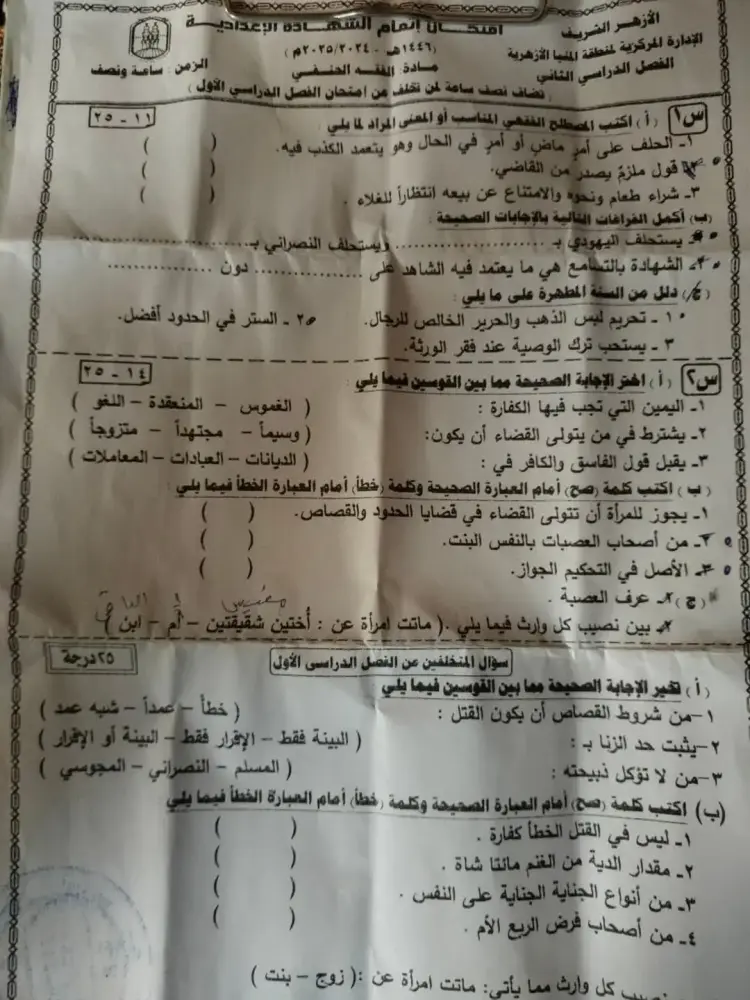 الأزهر الشريف
الإدارة المركزية لمنطقة المنيا الأزهرية
الفصل الدراسي الثاني
امتحان إتمام الشهادة الإعدادية
(١٤٤٦هـ - ٢٠٢٤/ ٢٠٢٥م)
مادة: الفقه الحنفي
الزمن: ساعة ونصف
( تضاف نصف ساعة لمن تخلف من امتحان الفصل الدراسي الأول )
س١ ( أ ) اكتب المصطلح الفقهي المناسب أو المعنى المراد لما يلي : ١١ - ٢٥
١- الحلف على أمر ماضٍ أو أمر في الحال وهو يتعمد الكذب فيه. ( )
٢- قول ملزم يصدر من القاضي. ( )
٣- شراء طعام ونحوه والامتناع عن بيعه انتظاراً للغلاء . ( )
(ب) أكمل الفراغات التالية بالإجابات الصحيحة :
١- يستحلف اليهودي بـ ..................... ويستحلف النصراني بـ.....................
٢- الشهادة بالتسامع هي ما يعتمد فيه الشاهد على ................ دون ................
(ج) دلل من السنة المطهرة على ما يلي :
١ - تحريم لبس الذهب والحرير الخالص للرجال. ٢ - الستر في الحدود أفضل.
٣ - يستحب ترك الوصية عند فقر الورثة.
س٢ ( أ ) اختر الإجابة الصحيحة مما بين القوسين فيما يلي : ١٤ - ٢٥
١- اليمين التي تجب فيها الكفارة : ( الغموس - المنعقدة - اللغو )
٢- يشترط في من يتولى القضاء أن يكون: ( وسيماً - مجتهداً - متزوجاً )
٣- يقبل قول الفاسق والكافر في : ( الديانات - العبادات - المعاملات )
( ب ) اكتب كلمة (صح) أمام العبارة الصحيحة وكلمة (خطأ) أمام العبارة الخطأ فيما يلي :
١- يجوز للمرأة أن تتولى القضاء في قضايا الحدود والقصاص. ( )
٢- من أصحاب العصبات بالنفس البنت. ( )
٣- الأصل في التحكيم الجواز. ( )
( ج ) ١- عرف العصبة .
٢- بين نصيب كل وارث فيما يلي .( ماتت امرأة عن : أختين شقيقتين - أم - ابن )
سؤال المتخلفين عن الفصل الدراسي الأول ٢٥درجة
( أ ) تخير الإجابة الصحيحة مما بين القوسين فيما يلي
١-من شروط القصاص أن يكون القتل : ( خطأ - عمداً - شبه عمد )
٢-يثبت حد الزنا بـ : ( البينة فقط - الإقرار فقط - البينة أو الإقرار )
٣-من لا تؤكل ذبيحته : ( المسلم - النصراني - المجوسي )
(ب) اكتب كلمة (صح) أمام العبارة الصحيحة وكلمة (خطأ) أمام العبارة الخطأ فيما يلي
١- ليس في القتل الخطأ كفارة . ( )
٢- مقدار الدية من الغنم مائتا شاة . ( )
٣- من أنواع الجناية الجناية على النفس . ( )
٤- من أصحاب فرض الربع الأم . ( )
نصيب كل وارث مما يأتي: ماتت امرأة عن :( زوج - بنت )